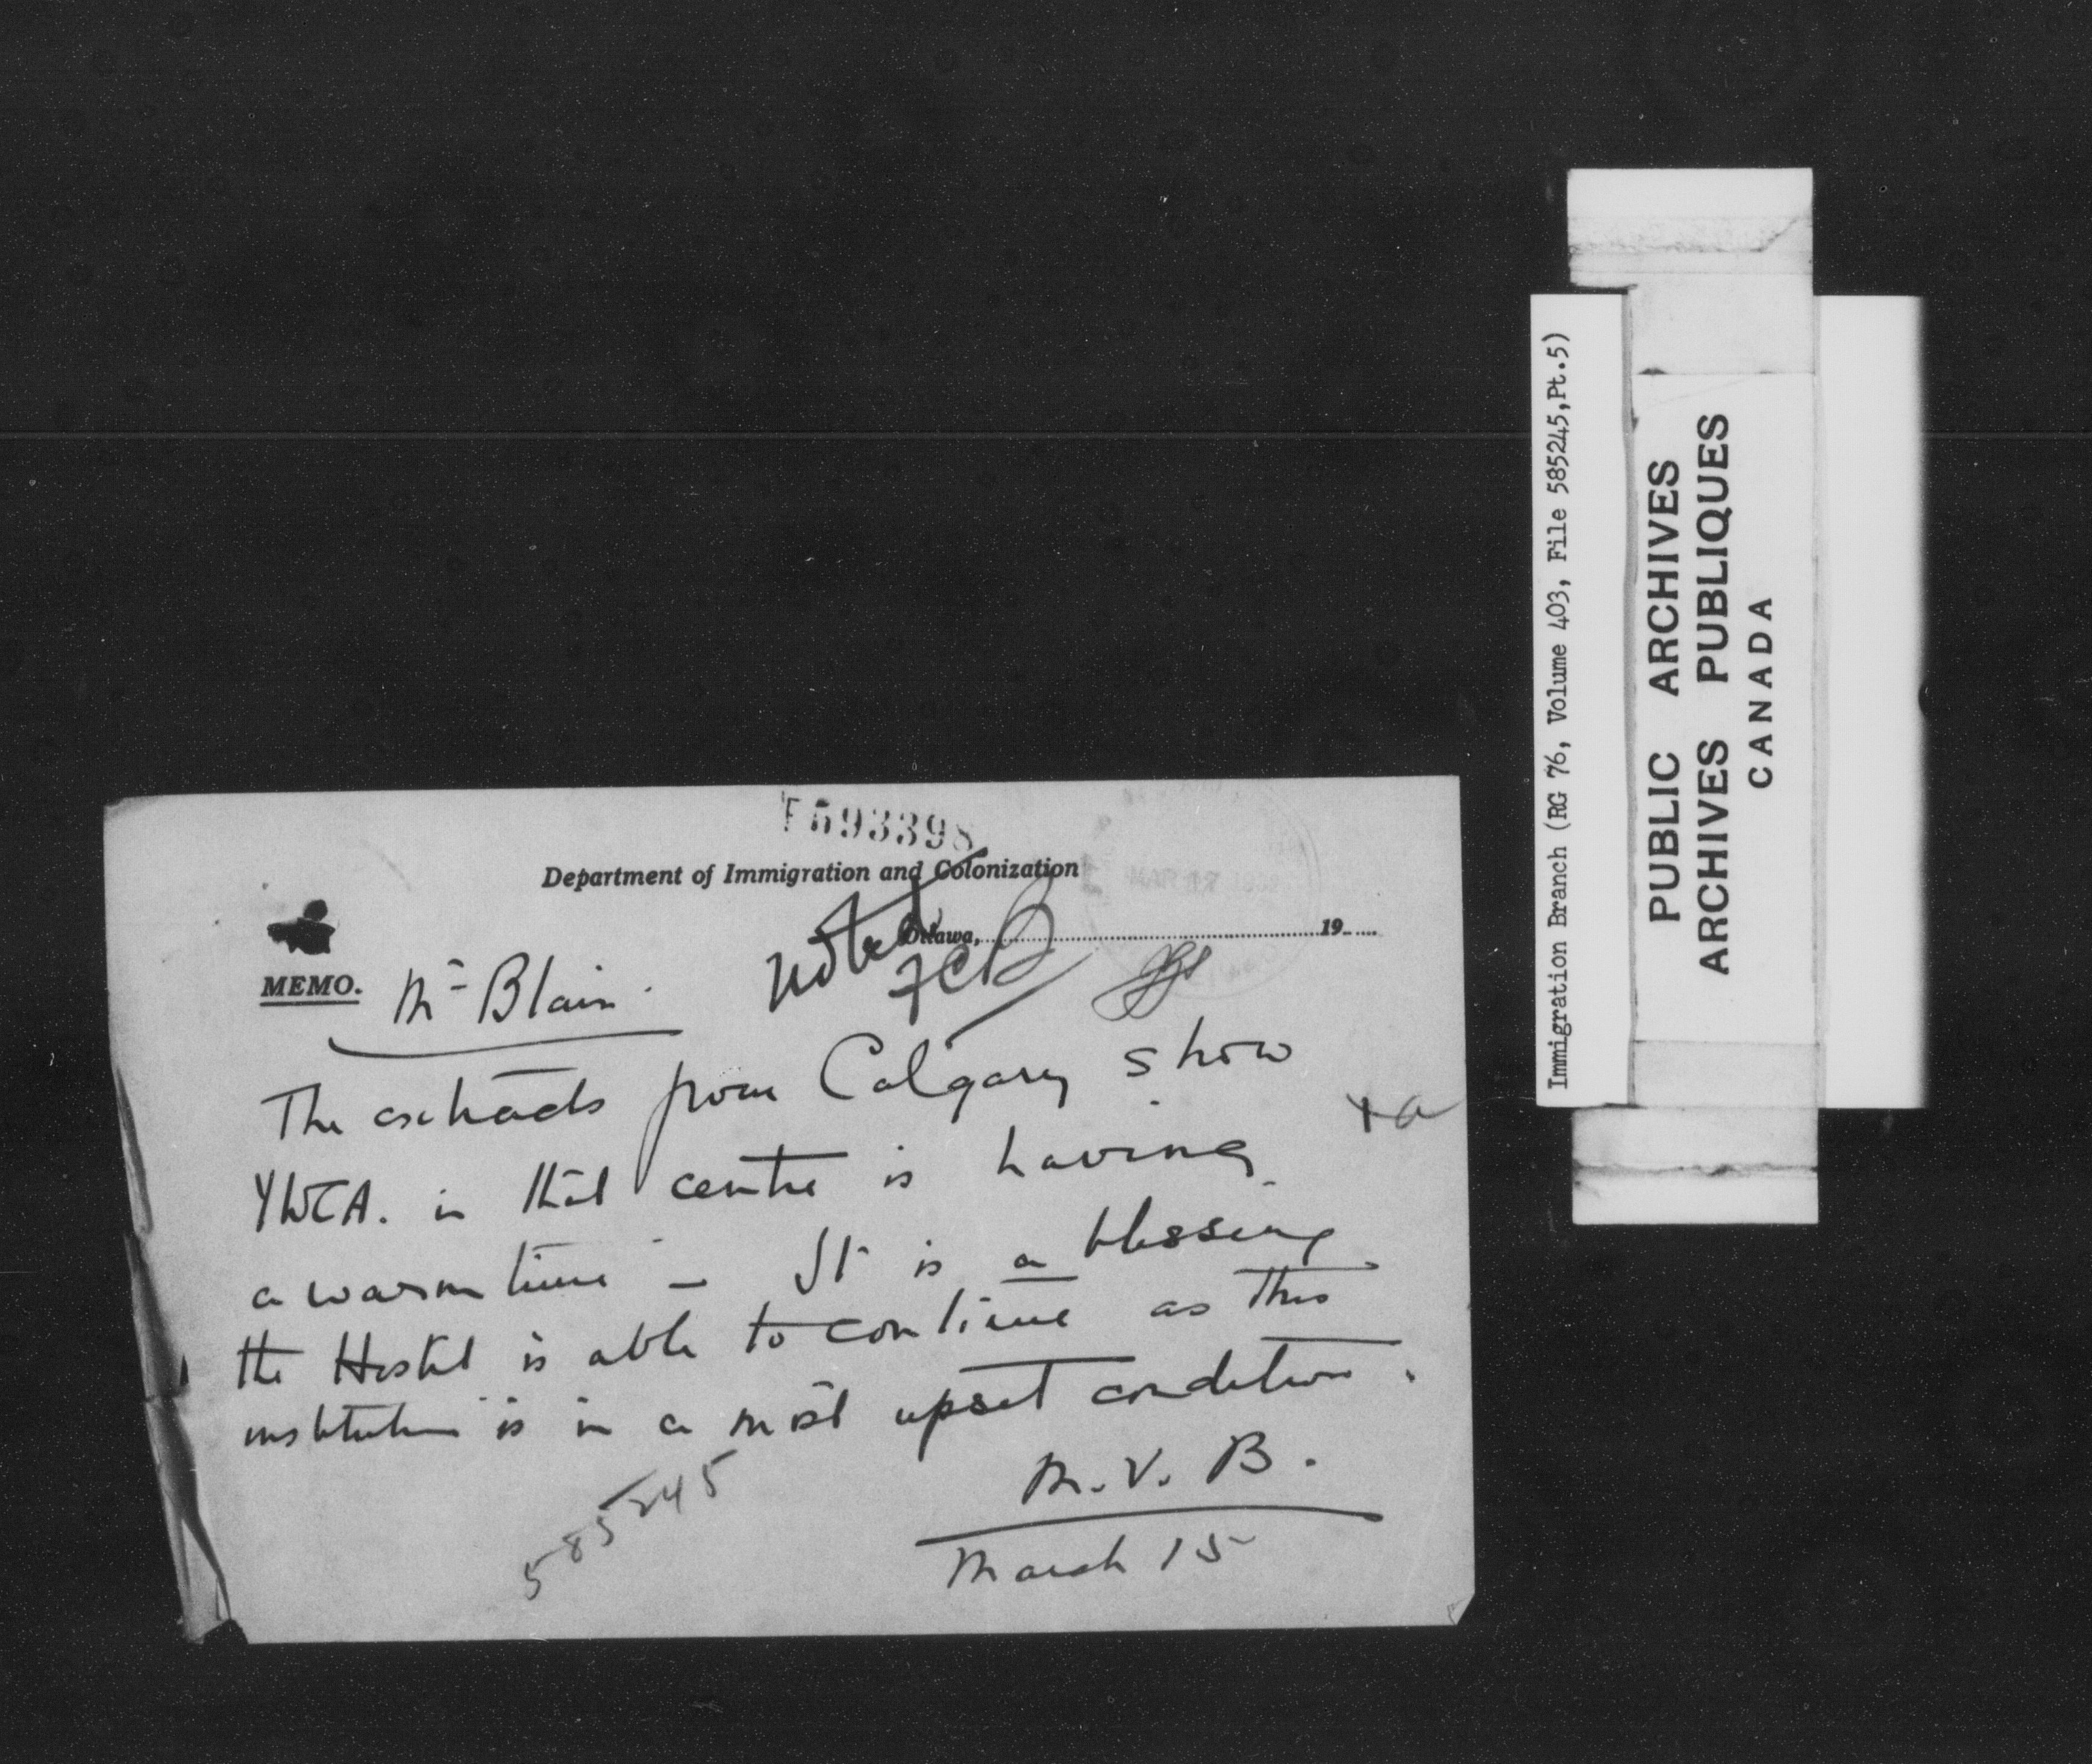 F593398
Department of Immigration and Colonization
Ottawa, 19
noted
FCB
MEMO. Mr Blain.
The extracts from Calgary show
YWCA. in that centre is having
a warm time – It is a blessing
the Hostel is able to continue as this
institution is in a most upset condition.
M. V. B.
March 15
585245
Immigration Branch (RG 76, Volume 403, File 585245,Pt.5)
PUBLIC ARCHIVES
ARCHIVES PUBLIQUES
CANADA